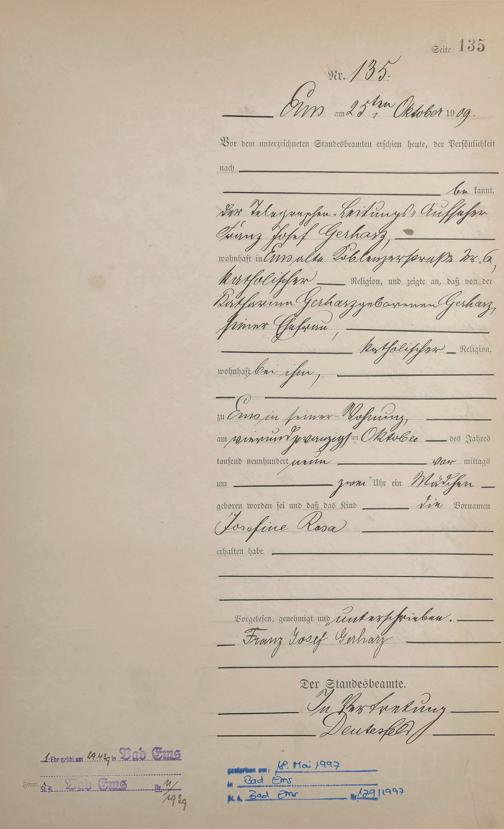 Seite 135
Nr. 135.
Ems am 25ten Oktober 1909.
Vor dem unterzeichneten Standesbeamten erschien heute, der Persönlichkeit
nach
bekannt,
der Telegraphen-Leitungs-Aufseher
Franz Josef Gerharz,
wohnhaft in Ems alte Koblenzerstraße Nr. 6,
katholischer Religion, und zeigte an, daß von der
Katharina Gerharz geborenen Gerharz,
seiner Ehefrau,
katholischer Religion,
wohnhaft bei ihm,
zu Ems in seiner Wohnung,
am vierundzwanzigsten Oktober des Jahres
tausend neunhundert neun vormittags
um zwei Uhr ein Mädchen
geboren worden sei und daß das Kind die Vornamen
Josefine Rosa
erhalten habe
Vorgelesen, genehmigt und unterschrieben.
Franz Josef Gerharz
Der Standesbeamte.
In Vertretung
1. Ehe geschl. am in Bad Ems
St.A. Bad Ems Nr. 11/
1929
gestorben am: 18. Mai 1997
in Bad Ems
St. A. Bad Ems Nr. 129/1997